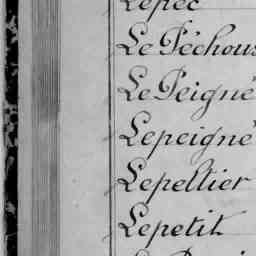 Lepec
Le Péchous
Le Peigné
Lepeigné
Lepeltier
Lepetit